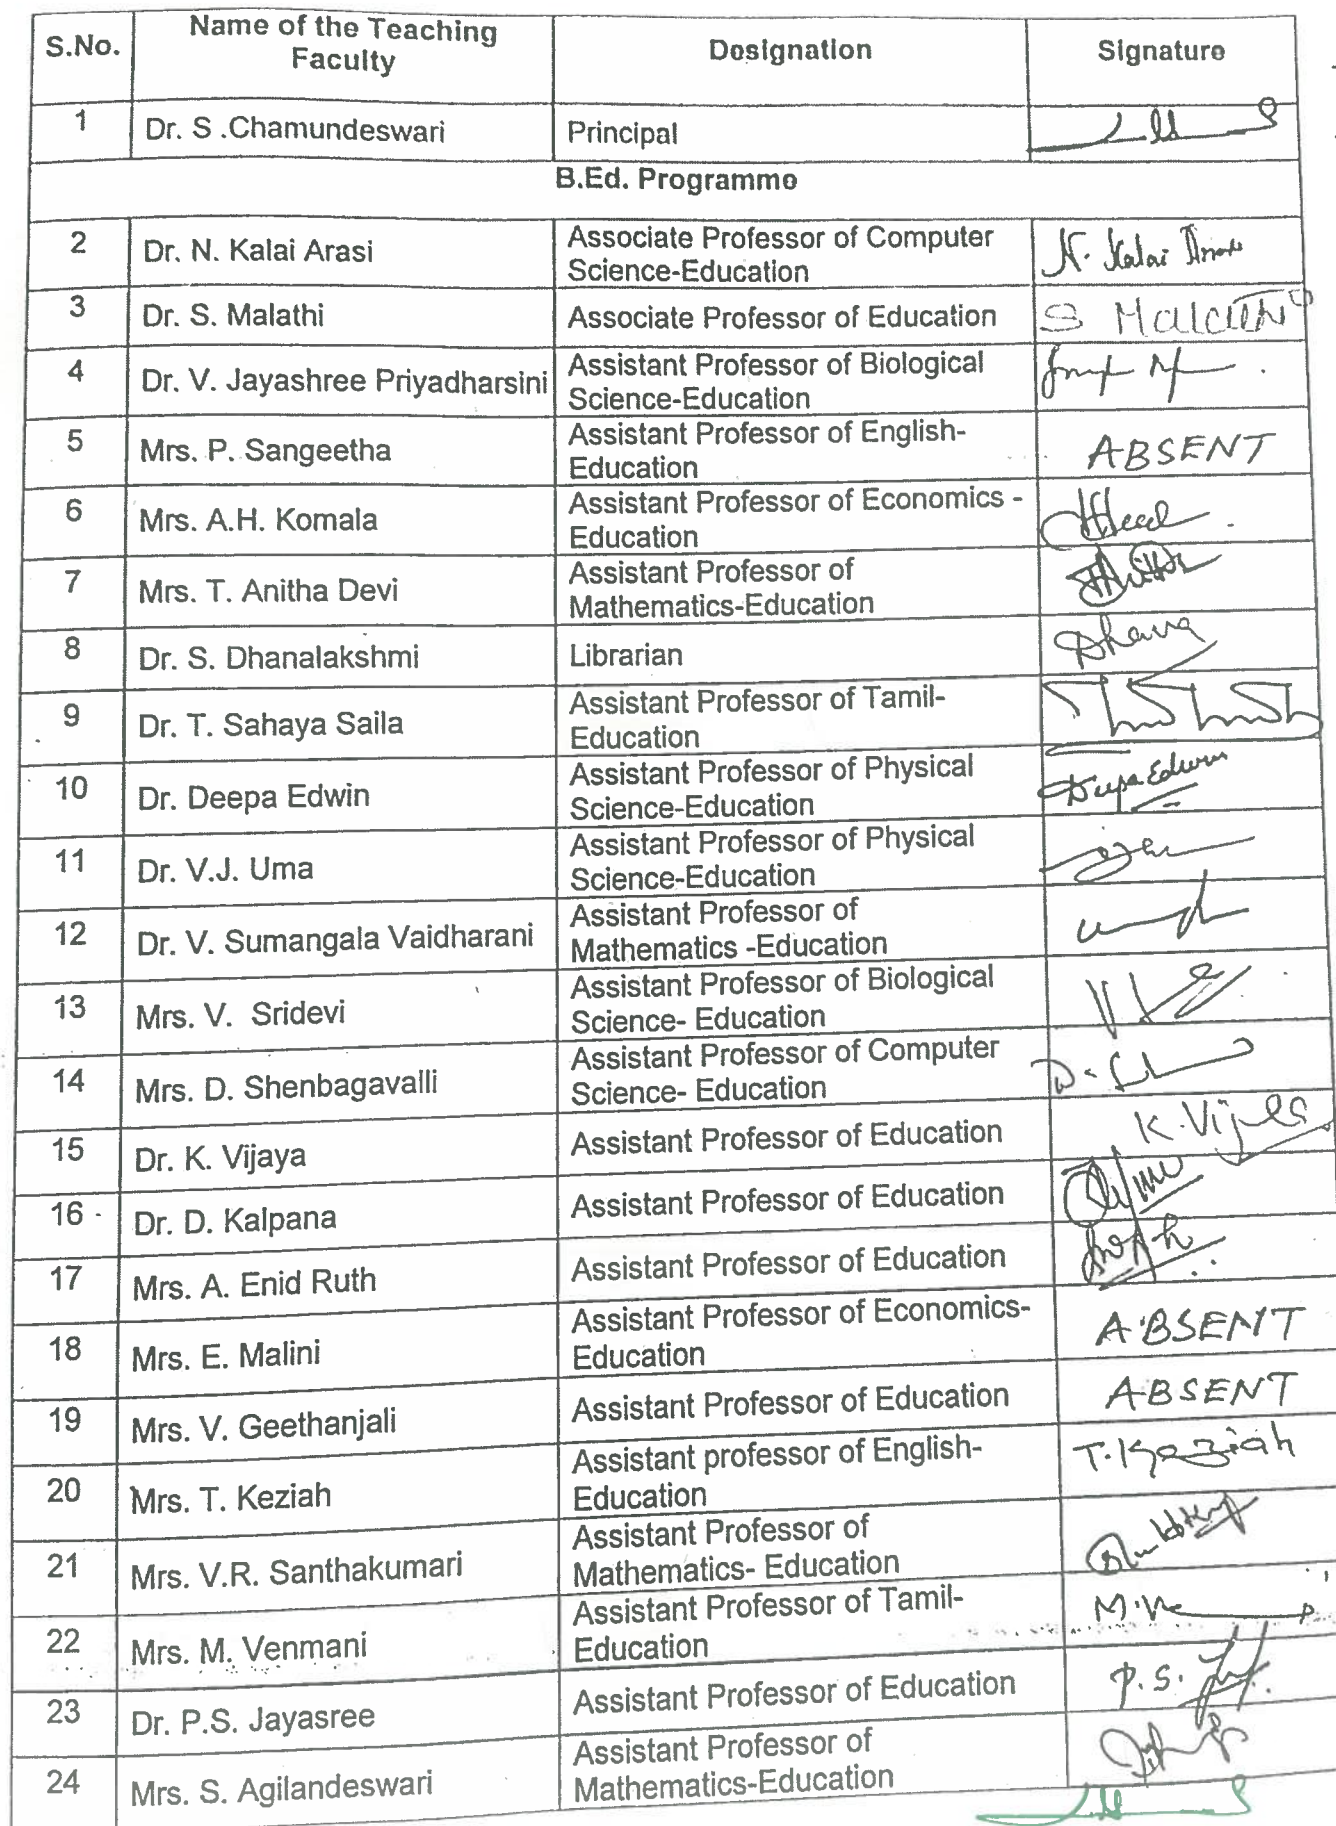 S.No. Name of the Teaching Faculty Designation Signature
1 Dr. S .Chamundeswari Principal
B.Ed. Programme
2 Dr. N. Kalai Arasi Associate Professor of Computer Science-Education N. Kalai
3 Dr. S. Malathi Associate Professor of Education S Malathi
4 Dr. V. Jayashree Priyadharsini Assistant Professor of Biological Science-Education
5 Mrs. P. Sangeetha Assistant Professor of English-Education ABSENT
6 Mrs. A.H. Komala Assistant Professor of Economics - Education
7 Mrs. T. Anitha Devi Assistant Professor of Mathematics-Education
8 Dr. S. Dhanalakshmi Librarian Dhana
9 Dr. T. Sahaya Saila Assistant Professor of Tamil-Education
10 Dr. Deepa Edwin Assistant Professor of Physical Science-Education Deepa Edwin
11 Dr. V.J. Uma Assistant Professor of Physical Science-Education
12 Dr. V. Sumangala Vaidharani Assistant Professor of Mathematics -Education
13 Mrs. V. Sridevi Assistant Professor of Biological Science- Education
14 Mrs. D. Shenbagavalli Assistant Professor of Computer Science- Education
15 Dr. K. Vijaya Assistant Professor of Education K. Vijaya
16 Dr. D. Kalpana Assistant Professor of Education
17 Mrs. A. Enid Ruth Assistant Professor of Education
18 Mrs. E. Malini Assistant Professor of Economics-Education ABSENT
19 Mrs. V. Geethanjali Assistant Professor of Education ABSENT
20 Mrs. T. Keziah Assistant professor of English-Education T. Keziah
21 Mrs. V.R. Santhakumari Assistant Professor of Mathematics- Education
22 Mrs. M. Venmani Assistant Professor of Tamil-Education
23 Dr. P.S. Jayasree Assistant Professor of Education P.S.
24 Mrs. S. Agilandeswari Assistant Professor of Mathematics-Education